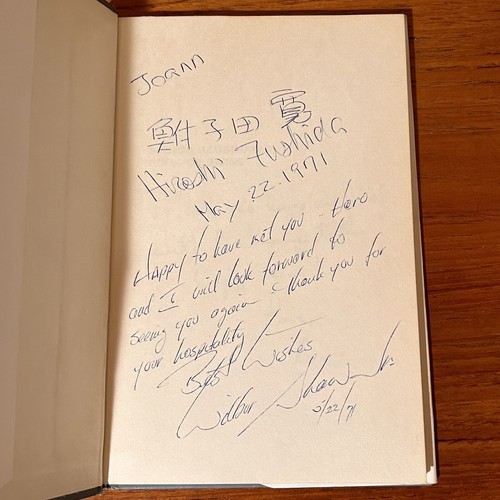 Joann
鮒子田 寛
Hiroshi Fushida
May 22. 1971
Happy to have met you - Hero
and I will look forward to
seeing you again - thank you for
your hospitality
Best Wishes
Wilbur Shaw Jr.
5/22/71